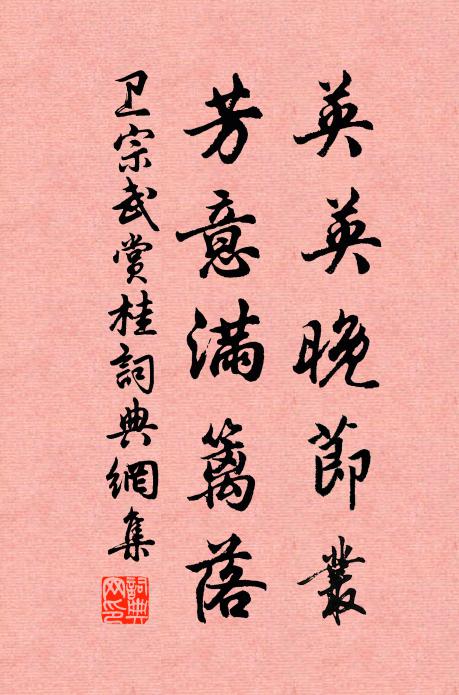 英英晚節叢
芳意滿籬落
卫宗武賞桂詞典網集
詞典网印